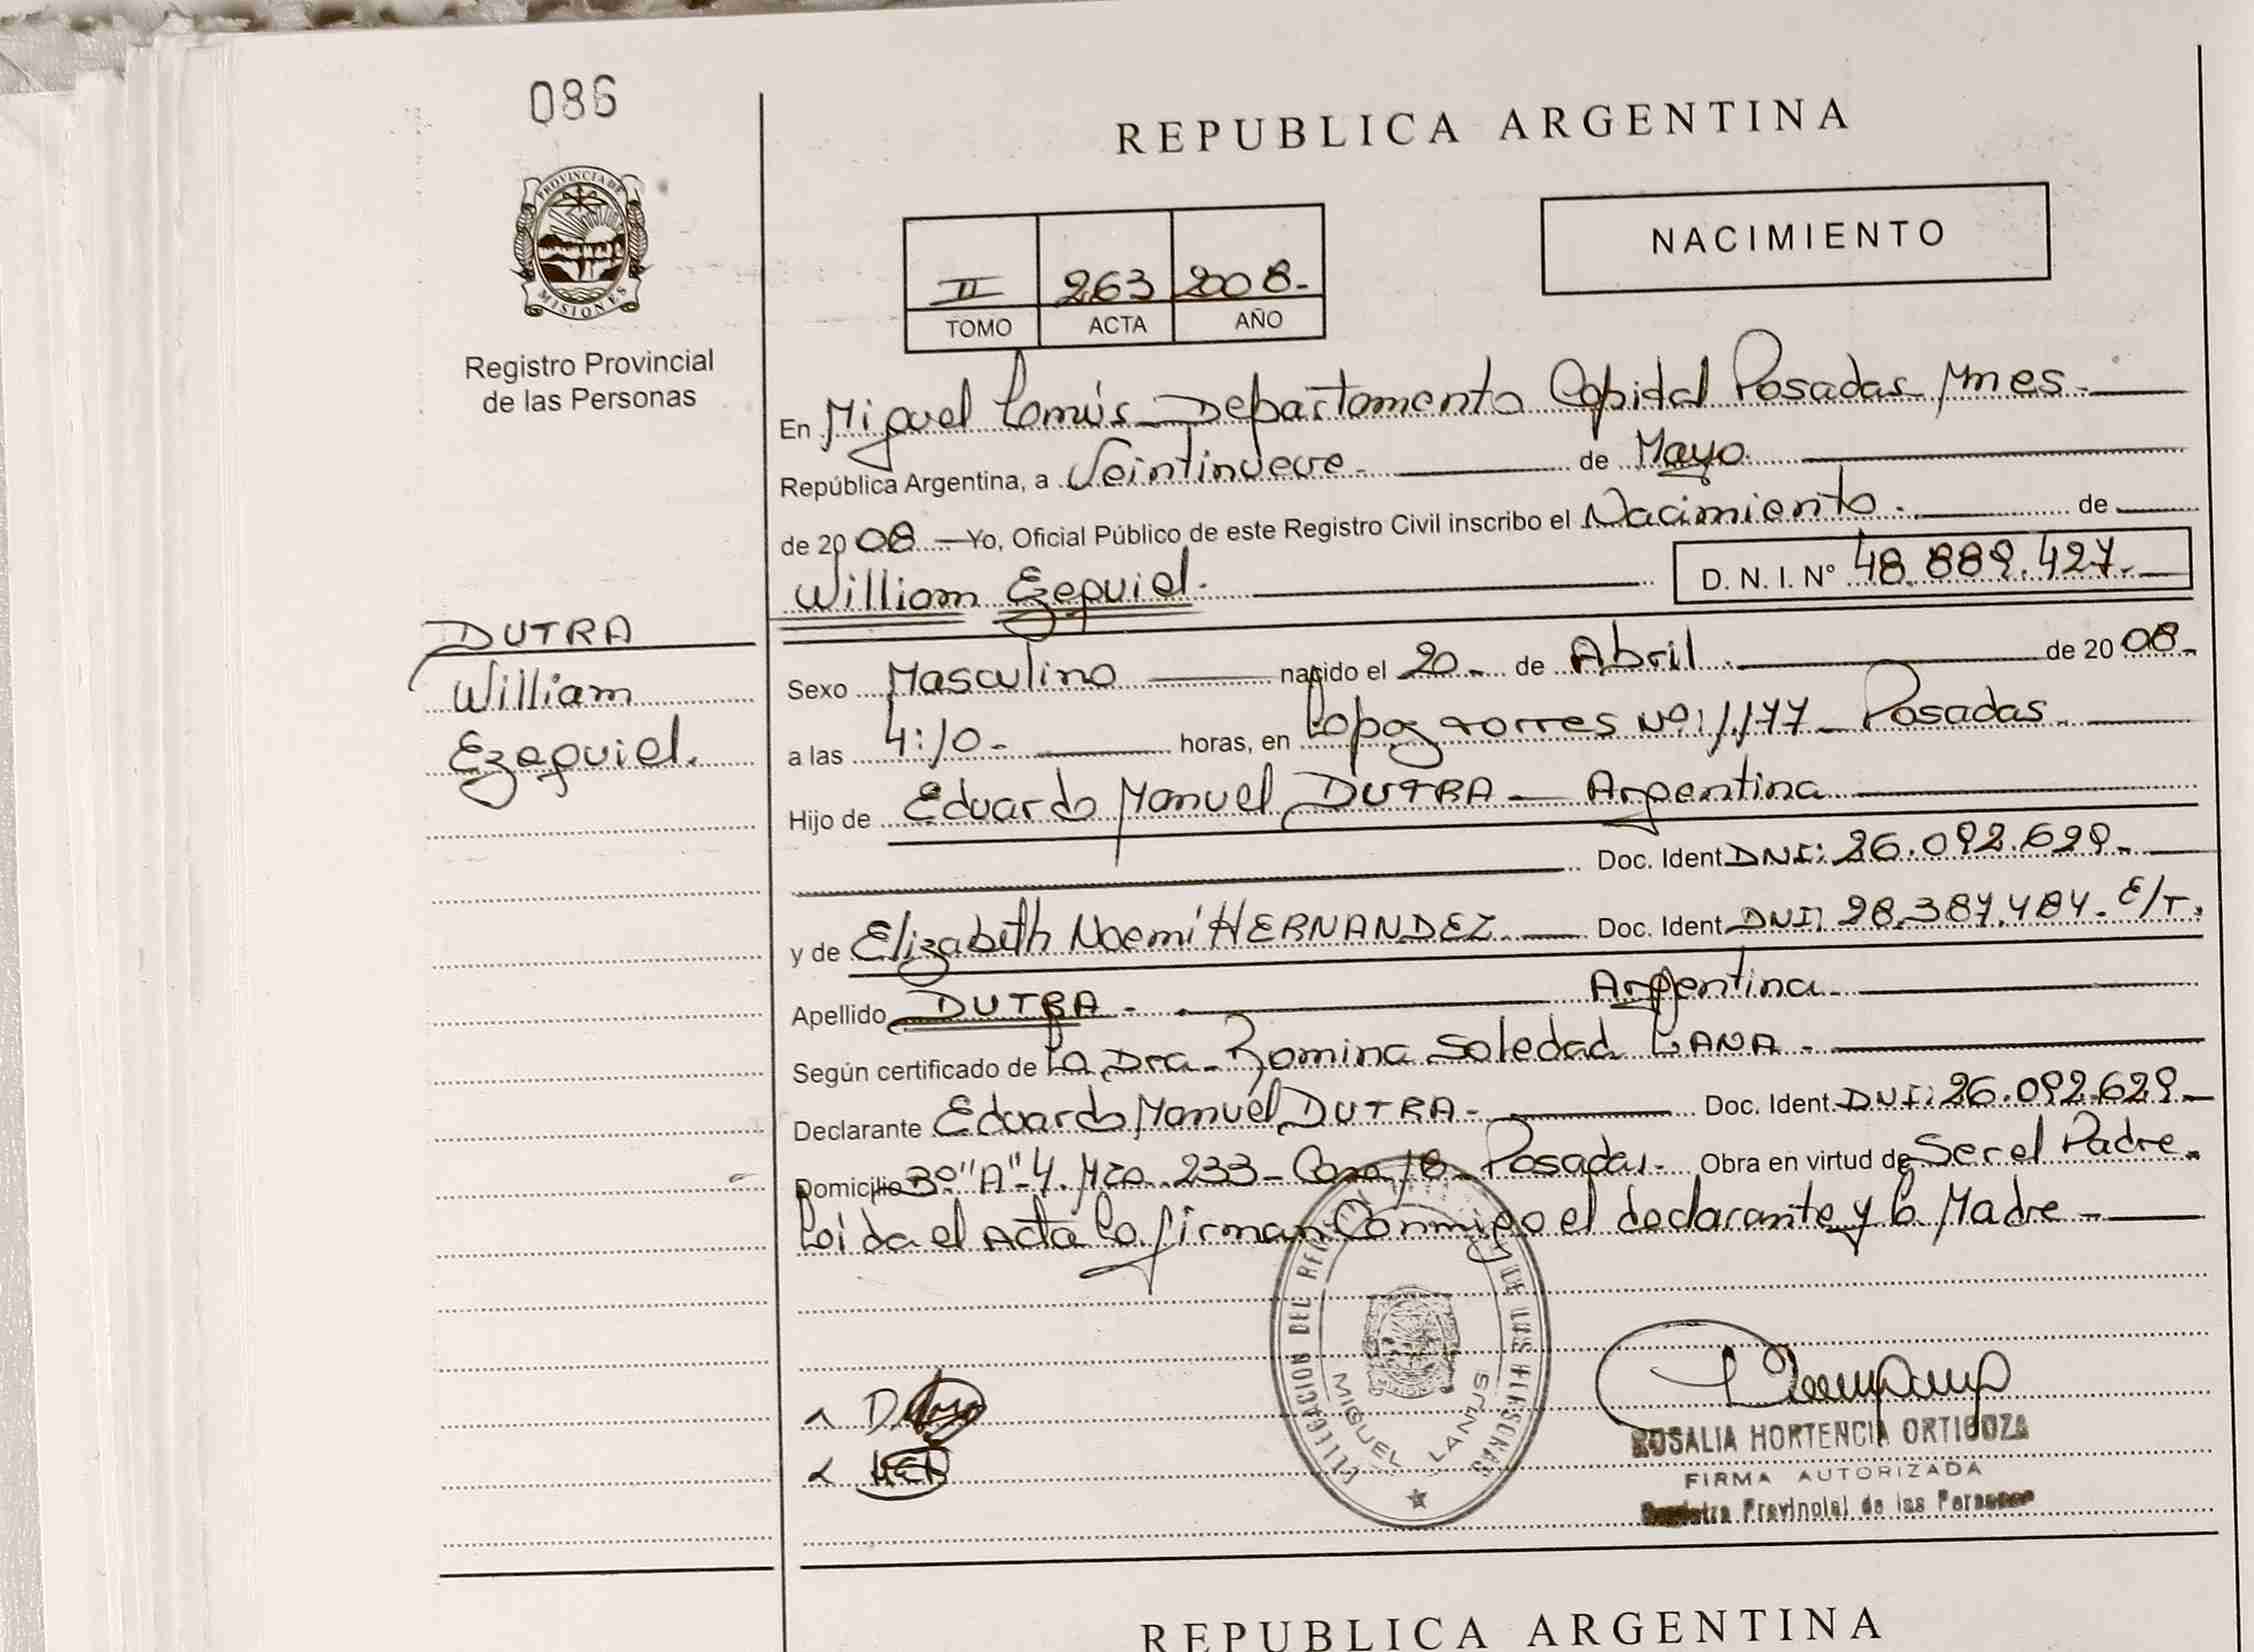 086
REPUBLICA ARGENTINA
PROVINCIA DE
MISIONES
Registro Provincial
de las Personas
II 263 2008.-
TOMO ACTA AÑO
NACIMIENTO
En Miguel Lanús Departamento Capital Posadas Mnes.-
República Argentina, a Veintinueve.- de Mayo.
de 2008 Yo, Oficial Público de este Registro Civil inscribo el Nacimiento.- de
William Ezequiel.- D. N. I. Nº 48.889.427.-
DUTRA
William
Ezequiel.
Sexo Masculino nacido el 20.- de Abril.- de 2008.-
a las 4:10.- horas, en Lopez torres Nº: 1.177 - Posadas.-
Hijo de Eduardo Manuel DUTRA - Argentina
Doc. Ident DNI: 26.092.629.-
y de Elizabeth Noemí HERNANDEZ.- Doc. Ident DNI: 28.387.484. E/T.
Apellido DUTRA.- Argentina
Según certificado de la Dra. Romina Soledad LANA.-
Declarante Eduardo Manuel DUTRA.- Doc. Ident. DNI: 26.092.629.-
Domicilio Bº "A"-4. Mza. 233 - Casa 18 - Posadas.- Obra en virtud de Ser el Padre.
Leida el Acta la firman Conmigo el declarante y la Madre -
DELEGACION DEL DE LAS PERSONAS
MIGUEL LANUS
ROSALIA HORTENCIA ORTIGOZA
FIRMA AUTORIZADA
Registro Provincial de las Personas
REPUBLICA ARGENTINA